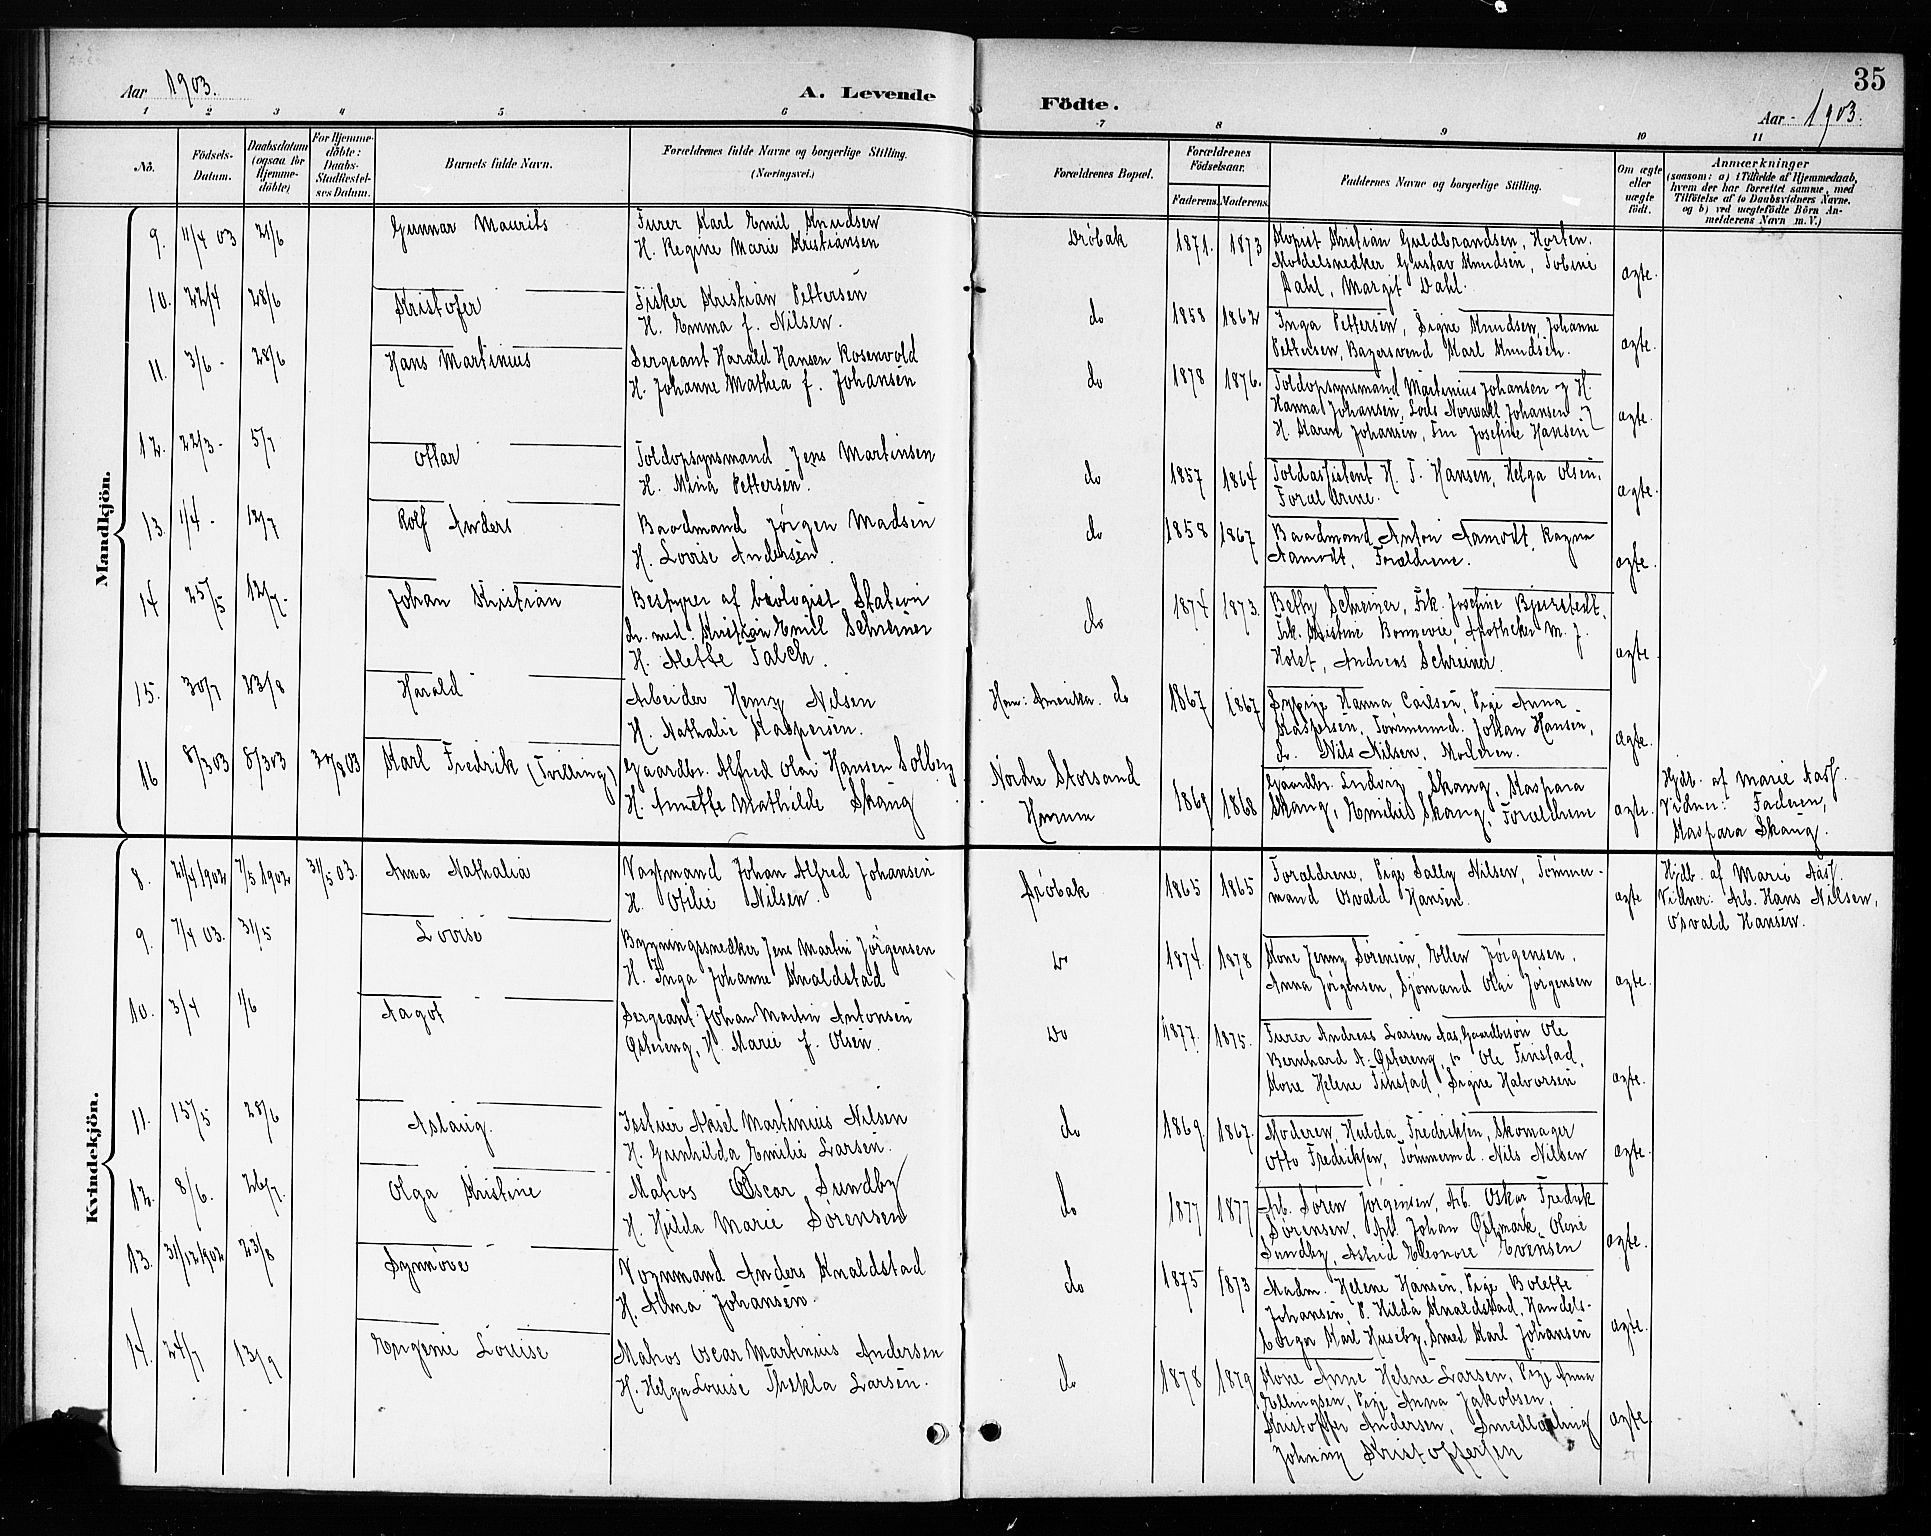 35
Aar 1903.
A. Levende
Födte.
Aar 1903.
1 2 3 4 5 6 7 8 9 10 11
No.
Födsels-
Datum.
Daabsdatum
(ogsaa for
Hjemme-
döbte)
For Hjemme-
döbte:
Daabs-
Stadfæstel-
ses Datum.
Barnets fulde Navn.
Forældrenes fulde Navne og borgerlige Stilling.
(Næringsvei.)
Forældrenes Bopæl.
Forældrenes
Födselsaar.
Faderens. Moderens.
Faddernes Navne og borgerlige Stilling.
Om ægte
eller
uægte
født.
Anmærkninger
(saasom: a) i Tilfælde af Hjemmedaab,
hvem der har forrettet samme, med
Tilföielse af to Daabsvidners Navne,
og b) ved uægtefödte Börn An-
melderens Navn m. V.)
Mandkjön.
9. 11/4 03 21/6 Gunnar Maurits
Furer Karl Emil Knudsen
H. Regine Marie Kristiansen
Drøbak 1871. 1873
Kopist Kristian Guldbrandsen, Horten.
Modelsnedker Gustav Knudsen, Tobine
Dahl, Margit Dahl.
ægte.
10. 22/4 28/6 Kristofer
Fisker Kristian Pettersen
H. Emma f. Nilsen.
do 1858 1862
Inga Pettersen, Signe Knudsen, Johanne
Pettersen, Bagersvend Karl Knudsen.
ægte.
11. 3/6 - 28/6 Hans Martinius
Sergeant Harald Hansen Rosenvold
H. Johanne Mathea f. Johansen
do 1878 1876.
Toldopsynsmand Martinius Johansen og H.
Hanna Johansen, Lods Norwall Johansen
H. Karen Johansen, Fru Josefine Hansen
ægte.
12. 22/3 - 5/7 Ottar
Toldopsynsmand Jens Martinsen
H. Mina Pettersen.
do 1857 1864
Toldassistent H. T. Hansen, Helga Olsen,
Forældrene.
ægte.
13. 1/4 - 12/7 Rolf Anders
Baadmand Jørgen Madsen
H. Lovise Andersen.
do 1858 1867
Baadmand Anton Aamodt, Ragna
Aamodt, Forældrene.
ægte.
14 25/5 12/7 - Johan Kristian
Bestyrer af biologist Station
Dr. med. Kristian Emil Schreiner
H. Alette Falch.
do 1874 1873.
Betty Schreiner, Frk. Josefine Bjurstedt,
Frk. Kristine Bonnevie, Apotheker M. J.
Holst, Andreas Schreiner.
ægte.
15. 30/7 23/8 Harald
Arbeider Henry Nilsen
H. Nathalie Kaspersen.
Ham: Amerika. do 1867 1867
Sypige Hanna Carlsen, Pige Anna
Kaspersen, Tømmermd. Johan Hansen,
do. Nils Nilsen, Moderen.
ægte.
16 8/3 03 8/3 03 30/8 03 Karl Fredrik (Tvilling)
Gaardbr. Alfred Olai Hansen Solberg
H. Annette Mathilde Skaug
Nordre Storsand
Hurum
1869 1868
Gaardbr. Ludvig Skaug, Kaspara
Skaug, Emilie Skaug, Forældrene
ægte.
Hjdb. af Marie Aas.
Vidner: Faderen,
Kaspara Skaug.
Kvindekjön.
8. 21/4 1902 7/5 1902 31/5 03. Anna Nathalia
Vagtmand Johan Alfred Johansen
H. Otilie Nilsen.
Drøbak 1865 1865
Forældrene, Pige Sally Nilsen, Tømmer-
mand Osvald Hansen.
ægte
Hjdb. af Marie Aas.
Vidner: Arb. Hans Nilsen,
Osvald Hansen.
9. 7/4 03. 31/5 Lovise
Bygningssnedker Jens Martin Jörgensen
H. Inga Johanne Knaldstad
do 1874. 1878
Kone Jenny Sørensen, Ellen Jørgensen,
Anna Jørgensen, Sjømand Olai Jørgensen
ægte.
10. 3/4 1/6 Aagot
Sergeant Johan Martin Antonsen
Østereng, H. Marie f. Olsen.
do 1877. 1875.
Furer Andreas Larsen Aas, Gaardbrsøn Ole
Bernhard A. Østereng, Ole Finstad,
Kone Helene Finstad, Signe Halvorsen
ægte.
11. 15/5 28/6 Aslaug.
Istuer Aksel Martinius Nilsen
H. Gunhilda Emilie Larsen.
do 1869. 1867.
Moderen, Hulda Fredriksen, Skomager
Otto Fredriksen, Tømmermd. Nils Nilsen
ægte.
12. 8/6. 26/7. Olga Kristine
Matros Oscar Sundby
H. Hilda Marie Sørensen
do 1877 1877
Arb. Søren Jørgensen, Arb. Oskar Fredrik
Sørensen, Arb. Johan Østmark, Oline
Sundby, Astrid Eleonore Evensen
ægte.
13. 31/12 1902 23/8 Synnøve
Vognmand Anders Knaldstad
H. Alma Johansen.
do 1875 1873
Madm. Helene Hansen, Pige Bolette
Johansen, P. Hilda Knaldstad, Handels-
borger Karl Huseby, Smed Karl Johansen
ægte.
14. 24/7 13/9 Eugenie Louise
Matros Oscar Martinius Andersen
H. Helga Louise Thekla Larsen.
do 1878 1879
Kone Anne Helene Larsen, Pige Anna
Ellingsen, Pige Anna Jakobsen,
Kristoffer Andersen, Smedlærling
Johnny Kristoffersen
ægte.